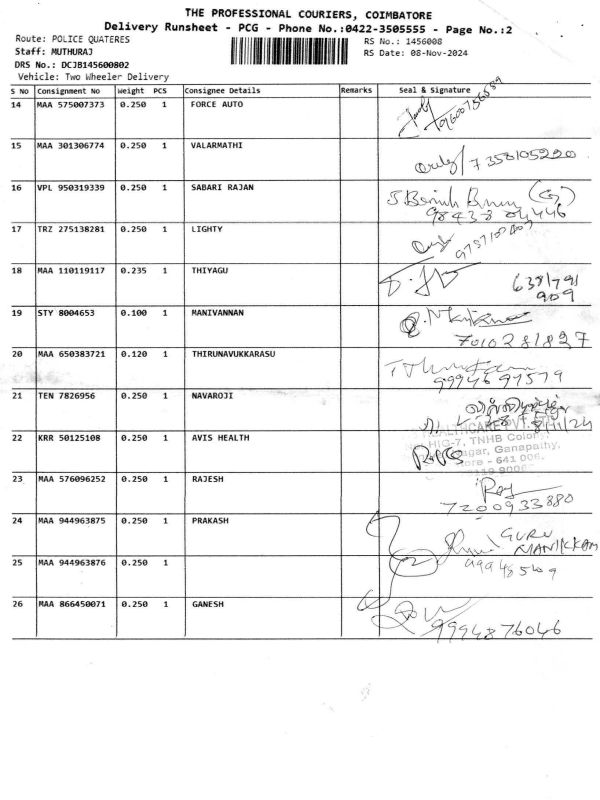 THE PROFESSIONAL COURIERS, COIMBATORE
Delivery Runsheet - PCG - Phone No.:0422-3505555 - Page No.:2
Route: POLICE QUATERES
RS No.: 1456008
Staff: MUTHURAJ
RS Date: 08-Nov-2024
DRS No.: DCJB145600802
Vehicle: Two Wheeler Delivery
S No Consignment No Weight PCS Consignee Details Remarks Seal & Signature
14 MAA 575007373 0.250 1 FORCE AUTO
15 MAA 301306774 0.250 1 VALARMATHI 7358105220
16 VPL 950319339 0.250 1 SABARI RAJAN
98438 04446
17 TRZ 275138281 0.250 1 LIGHTY
18 MAA 110119117 0.235 1 THIYAGU 6381791
909
19 STY 8004653 0.100 1 MANIVANNAN
7010281827
20 MAA 650383721 0.120 1 THIRUNAVUKKARASU
9994697579
21 TEN 7826956 0.250 1 NAVAROJI
8/11/24
22 KRR 50125108 0.250 1 AVIS HEALTH
HIG-7, TNHB Colony
Ganapathy,
641 006.
23 MAA 576096252 0.250 1 RAJESH Raj
7200933880
24 MAA 944963875 0.250 1 PRAKASH GURU
MANIKKAM
25 MAA 944963876 0.250 1
26 MAA 866450071 0.250 1 GANESH
9994876046